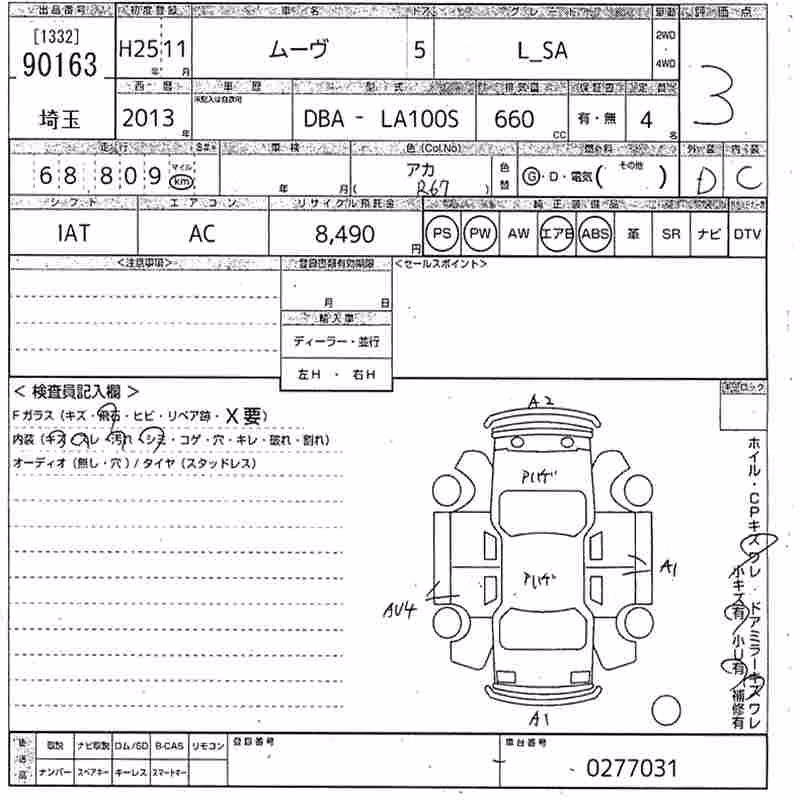 出品番号 初度登録 車名 ドア グレード 駆動 評価点
[1332] 90163 H25 11 年 月 ムーヴ 5 L_SA 2WD ・ 4WD 3
西暦 車歴 型式 排気量 保証書 定員
埼玉 2013 年 未記入は自家可 DBA - LA100S 660 CC 有・無 4 名
走行 車検 色(Col.No) 燃料 外装 内装
68 809 マイル km 年 月 アカ ( R67 ) 色替 G・D・電気( その他 ) D C
シフト エアコン リサイクル預託金 純正装備品
IAT AC 8,490 円 PS PW AW エアB ABS 革 SR ナビ DTV
<注意事項> 登録書類有効期限 <セールスポイント>
月 日
輸入車
ディーラー・並行
左H ・ 右H
< 検査員記入欄 >
Fガラス(キズ・飛石・ヒビ・リペア跡・X要)
内装(キズ・スレ・汚れ・シミ・コゲ・穴・キレ・破れ・割れ)
オーディオ(無し・穴)/タイヤ(スタッドレス)
A2
Pハゲ
Pハゲ
A1
AU4
A1
ホイル・CPキズワレ ドアミラーキズワレ
小キズ有/小U有 補修有
後送品 取説 ナビ取説 ロム/SD B-CAS リモコン 登録番号 車台番号
ナンバー スペアキー キーレス スマートキー 0277031